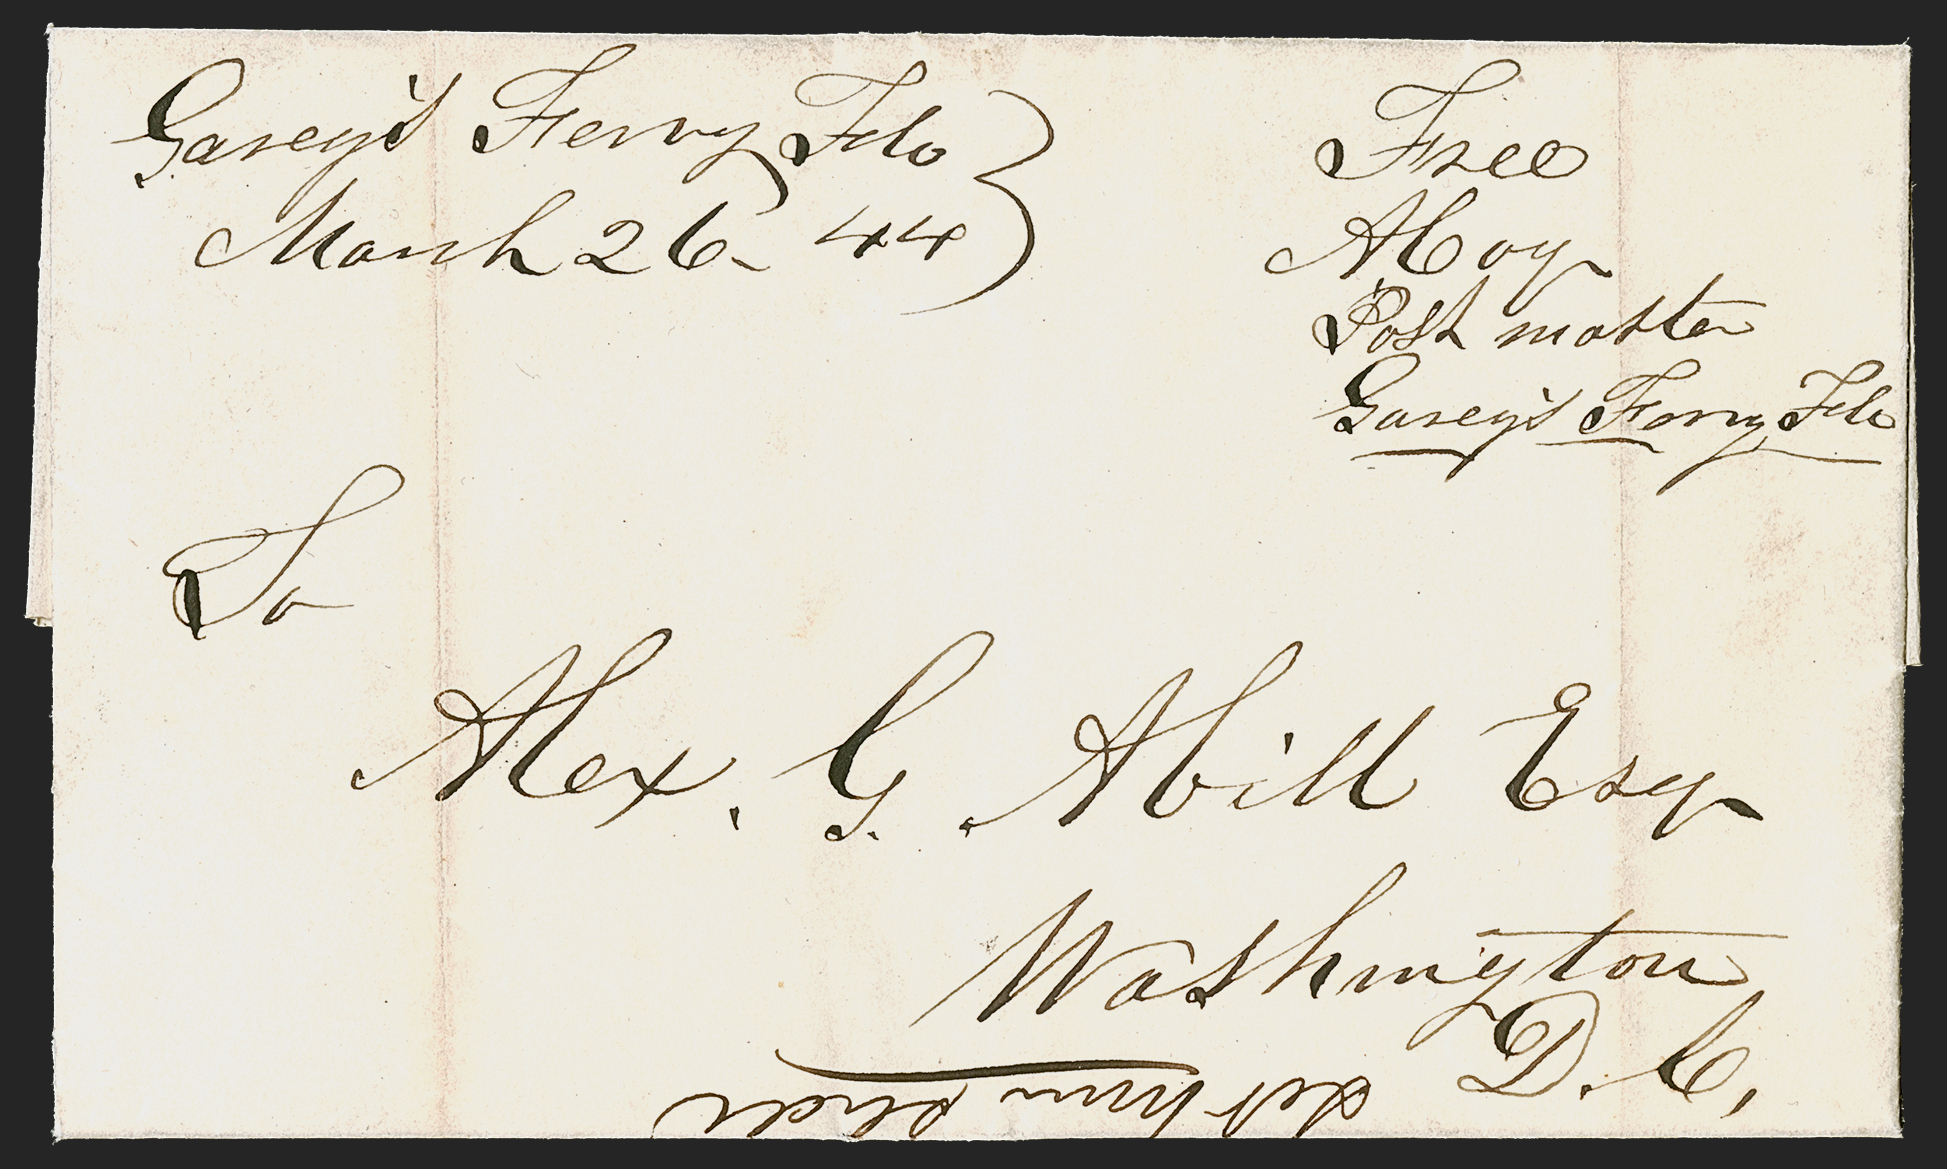 Garey's Ferry Flo
March 26 - 44
Free
A Coy
Post master
Garey's Ferry Flo
To
Alex. G. Abill Esq
Washington
D. C,